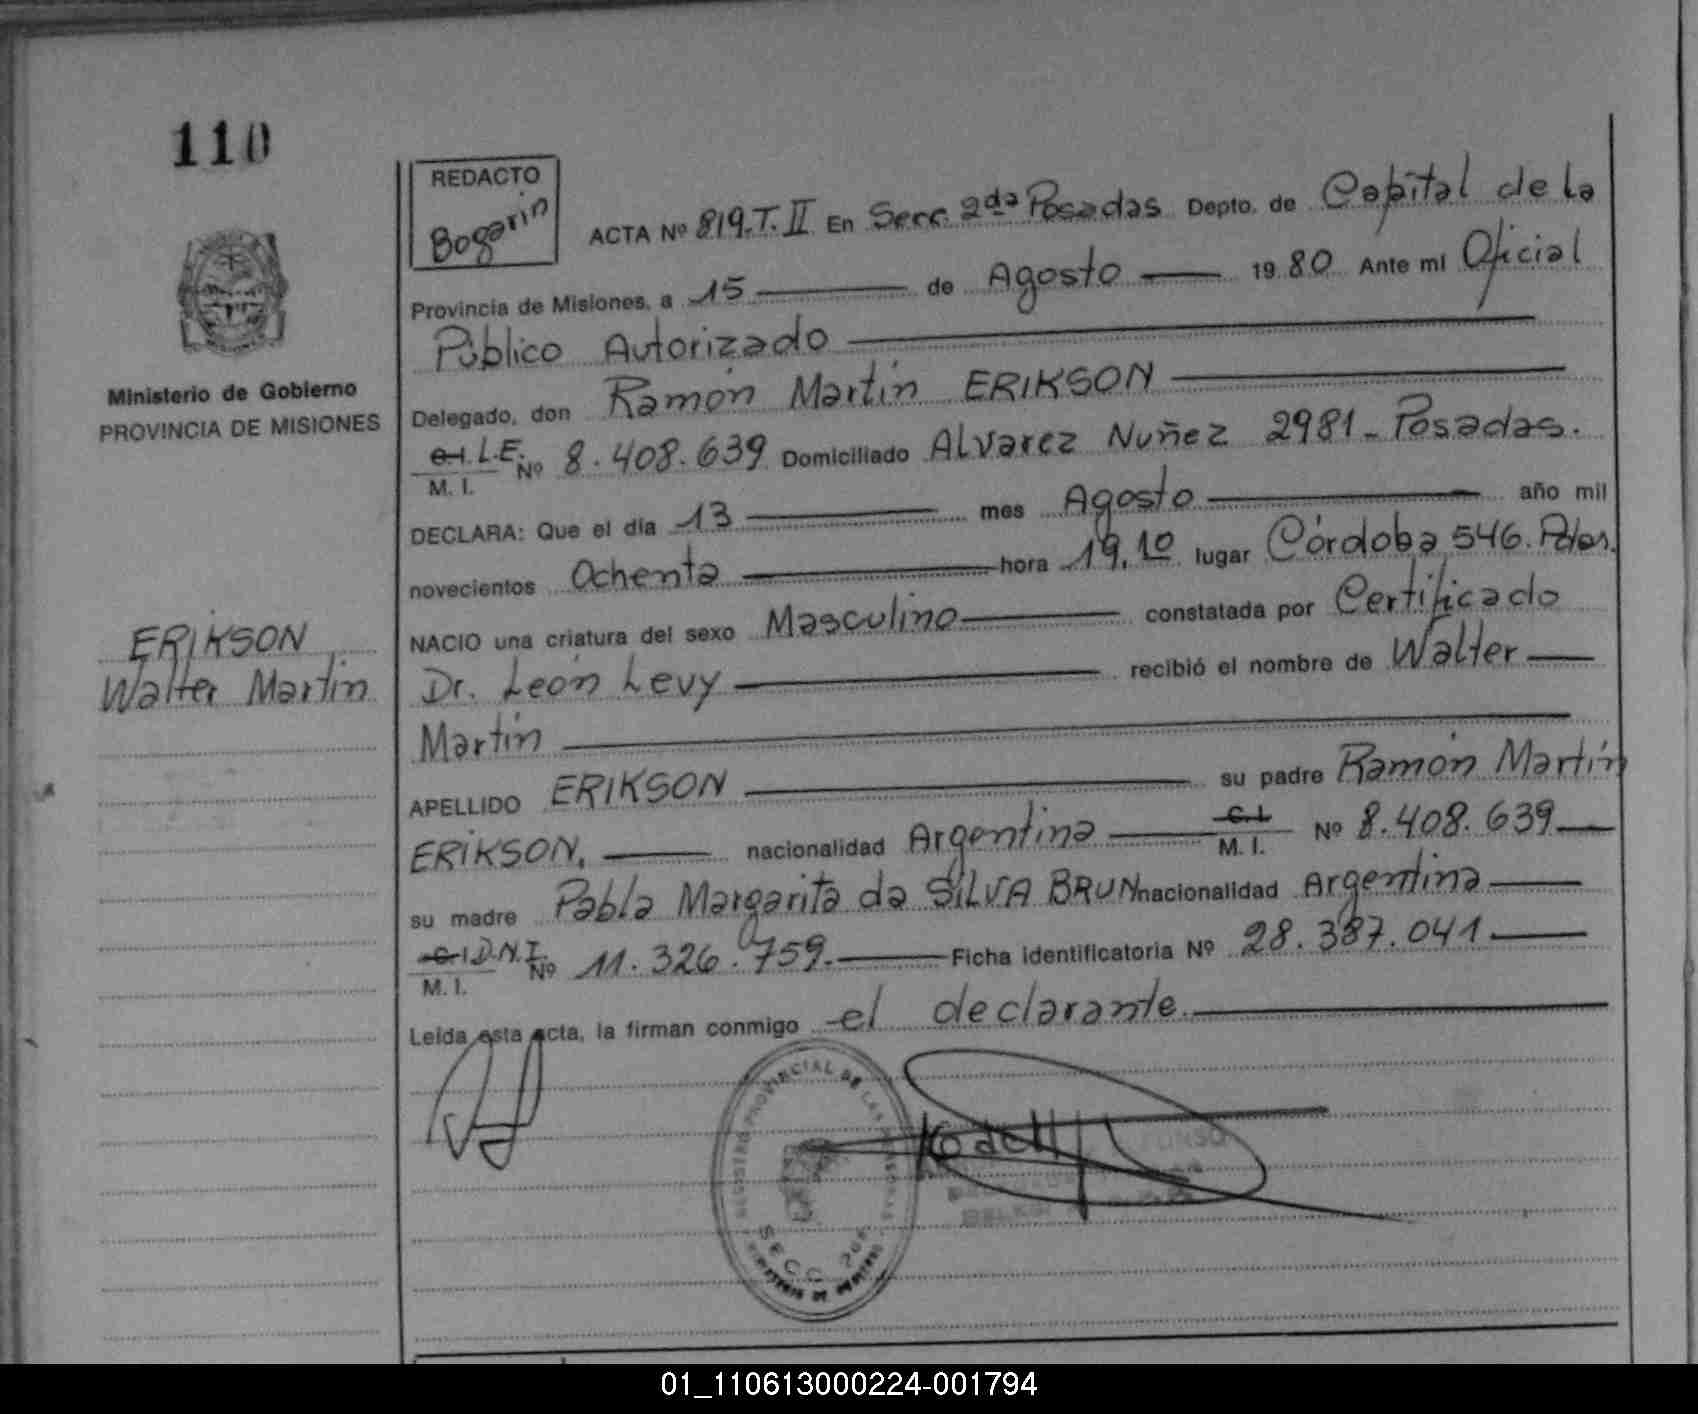 110
REDACTO
Bogarin
ACTA Nº 819.T.II En Secc. 2da Posadas Depto. de Capital de la
Provincia de Misiones, a 15 de Agosto 1980 Ante mi Oficial
Público Autorizado
Delegado, don Ramón Martín ERIKSON
C.I. L.E. Nº 8.408.639 Domiciliado Alvarez Nuñez 2981 - Posadas.
M. I.
DECLARA: Que el día 13 mes Agosto año mil
novecientos Ochenta hora 19,10 lugar Córdoba 546. Pdas.
NACIO una criatura del sexo Masculino constatada por Certificado
Dr. León Levy recibió el nombre de Walter
Martín
APELLIDO ERIKSON su padre Ramón Martín
ERIKSON. nacionalidad Argentina C.I. M. I. Nº 8.408.639
su madre Pabla Margarita da SILVA BRUN nacionalidad Argentina
C.I. D.N.I. Nº 11.326.759. Ficha identificatoria Nº 28.387.041
M. I.
Leída esta acta, la firman conmigo el declarante.
Ministerio de Gobierno
PROVINCIA DE MISIONES
ERIKSON
Walter Martín
REGISTRO PROVINCIAL DE LAS PERSONAS
SECC. 2da
MINISTERIO DE GOBIERNO
01_110613000224-001794